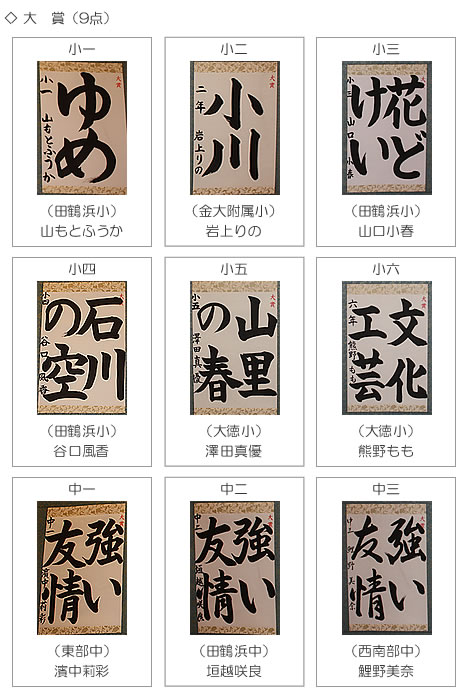 ◇ 大　賞（9点）
小一
大賞
ゆめ
小一 山もとふうか
（田鶴浜小）
山もとふうか
小二
大賞
小川
二年 岩上りの
（金大附属小）
岩上りの
小三
大賞
花ど
けい
小三 山口小春
（田鶴浜小）
山口小春
小四
石川
の空
小四 谷口風香
（田鶴浜小）
谷口風香
小五
大賞
山里
の春
小五 澤田真優
（大徳小）
澤田真優
小六
大賞
文化
工芸
六年 熊野もも
（大徳小）
熊野もも
中一
大賞
強い
友情
中一 濱中莉彩
（東部中）
濱中莉彩
中二
大賞
強い
友情
中二 垣越咲良
（田鶴浜中）
垣越咲良
中三
大賞
強い
友情
中三 鯉野美奈
（西南部中）
鯉野美奈